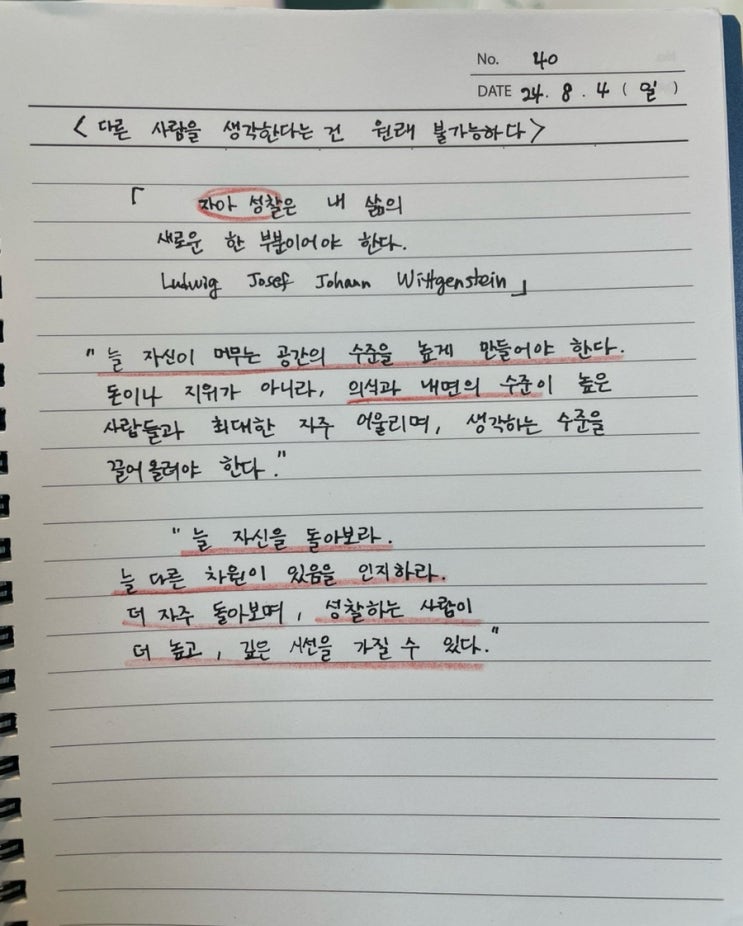 No. 40
DATE 24. 8. 4 ( 일 )
< 다른 사람을 생각한다는 건 원래 불가능하다 >
「 자아 성찰은 내 삶의
새로운 한 부분이어야 한다.
Ludwig Josef Johann Wittgenstein 」
" 늘 자신이 머무는 공간의 수준을 높게 만들어야 한다.
돈이나 지위가 아니라, 의식과 내면의 수준이 높은
사람들과 최대한 자주 어울리며, 생각하는 수준을
끌어올려야 한다."
" 늘 자신을 돌아보라.
늘 다른 차원이 있음을 인지하라.
더 자주 돌아보며, 성찰하는 사람이
더 높고, 깊은 시선을 가질 수 있다."